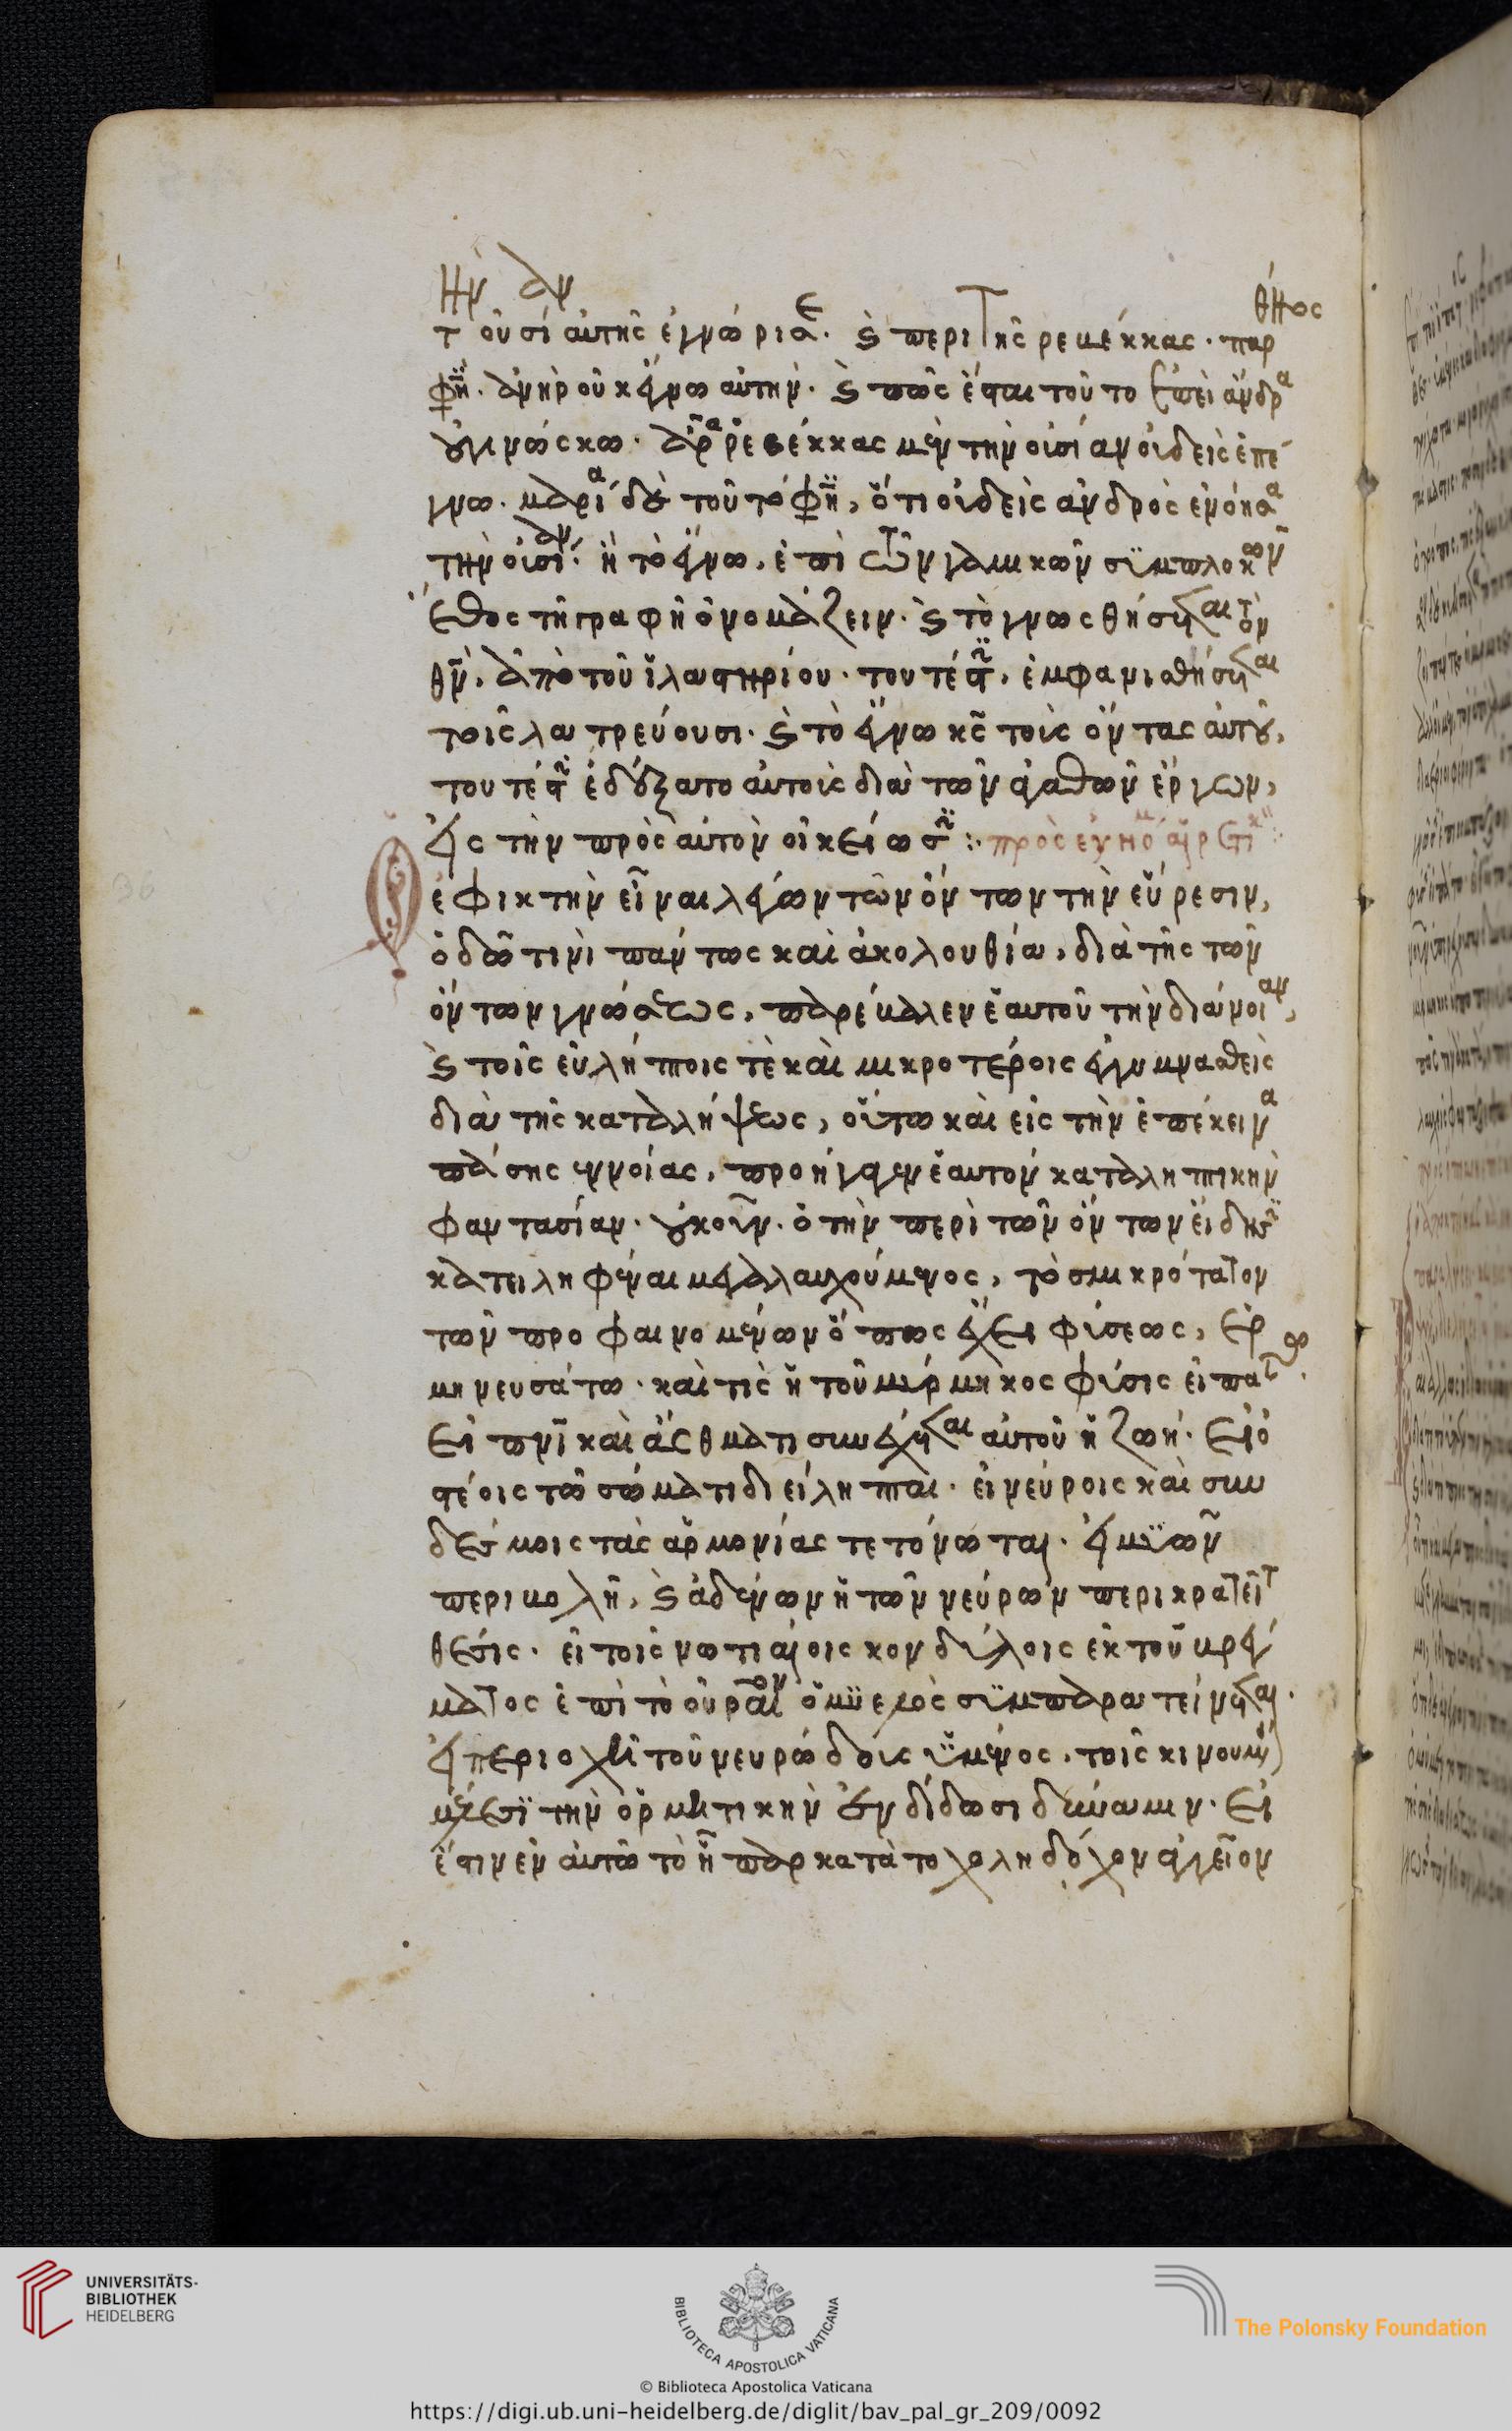 τὴν οὐσίαν αὐτῆς ἐγνώρισε. καὶ περὶ τῆς ρεβέκκας. παρθένος
φη. ἀνὴρ οὐκ ἔγνω αὐτήν. καὶ πῶς ἔσται τοῦτο ἐπεὶ ἄνδρα
οὐ γινώσκω. ἆρα ρεβέκκας μὲν τὴν οὐσίαν οὐδεὶς ἐπέ
γνω. μαρία δὲ τοῦτό φη, ὅτι οὐδεὶς ἀνδρὸς ἐνόησα
τὴν οὐσίαν. ἢ τὸ ἔγνω, ἐπὶ τῶν γαμικῶν συμπλοκῶν
ἔθος τῆ γραφῆ ὀνομάζειν. καὶ τὸ γνωσθήσεται τὸν
θν, ἀπὸ τοῦ ἱλαστηρίου. τουτέστιν, ἐμφανισθήσεται
τοῖς λατρεύουσι. καὶ τὸ ἔγνω κς τοὺς ὄντας αὐτοῦ,
τουτέστιν ἐδέξατο αὐτοὺς διὰ τῶν ἀγαθῶν ἔργων,
εἰς τὴν πρὸς αὐτὸν οἰκείωσιν: πρὸς εὐνόμιον αἱρετικόν:
Ὁ ἐφικτὴν εἶναι λέγων τῶν ὄντων τὴν εὕρεσιν,
ὁδῶ τινὶ πάντως καὶ ἀκολουθία, διὰ τῆς τῶν
ὄντων γνώσεως, παρέβαλεν ἑαυτοῦ τὴν διάνοιαν,
καὶ τοῖς εὐλήπτοις τὲ καὶ μικροτέροις ἐγγυμνασθεὶς
διὰ τῆς καταλήψεως, οὕτω καὶ εἰς τὴν ἐπέκεινα
πάσης ἐννοίας, προήγαγεν ἑαυτὸν καταληπτικὴν
φαντασίαν. οὐκοῦν. ὁ τὴν περὶ τῶν ὄντων εἴδησιν
κατειληφέναι μεγαλαυχούμενος, τὸ σμικρότατον
τῶν προφαινομένων ὅπως ἔχει φύσεως, ἑρ
μηνευσάτω. καὶ τίς ἡ τοῦ μύρμηκος φύσις εἰπάτω.
εἰ πνι καὶ ἄσθματι συνέχεται αὐτοῦ ἡ ζωή. εἰ ὀ
στέοις τῶ σώματι διείληπται. εἰ νεύροις καὶ συν
δέσμοις τὰς ἁρμονίας τετόνωται. εἰ μυῶν
περιβολῆ, καὶ ἀδένων ἡ τῶν νεύρων περικρατεῖται
θέσις. εἰ τοῖς νωτιαίοις κονδύλοις ἐκ τοῦ βρέγ
ματος ἐπὶ τὸ οὐραῖον ὁ μυελὸς συμπαρατείνεται.
εἰ περιοχῆ τοῦ νευρώδους ὑμένος, τοῖς κινουμένοις
μέρεσι τὴν ὁρμητικὴν ἐνδίδωσι δύναμιν. εἰ
ἔστιν ἐν αὐτῶ τὸ ἧπαρ κατὰ τὸ χοληδόχον ἀγγεῖον
UNIVERSITÄTS-
BIBLIOTHEK
HEIDELBERG
BIBLIOTECA APOSTOLICA VATICANA
The Polonsky Foundation
© Biblioteca Apostolica Vaticana
https://digi.ub.uni-heidelberg.de/diglit/bav_pal_gr_209/0092